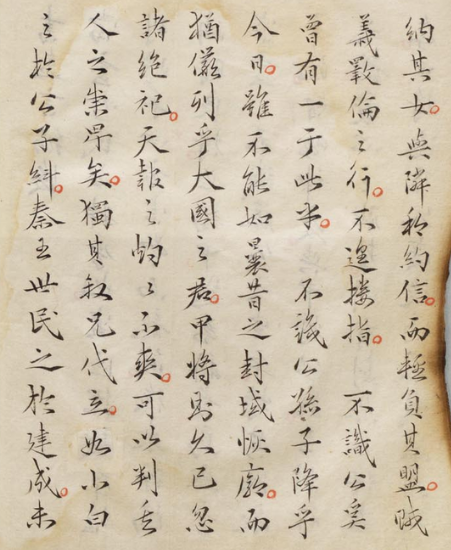 納其女。與隣私約信。而輒負其盟。賊
義斁倫之行。不遑摟指。 不識公奚
曾有一于此乎。 不識公孫子降乎
今日。雖不能如曩昔之封域恢廓。而
猶儼列乎大國之君。將久已忽
諸絕祀。天報之不爽。可以判
人之崇卑矣。獨其殺兄代立。如小白
之於公子糾。秦王世民之於建成。未